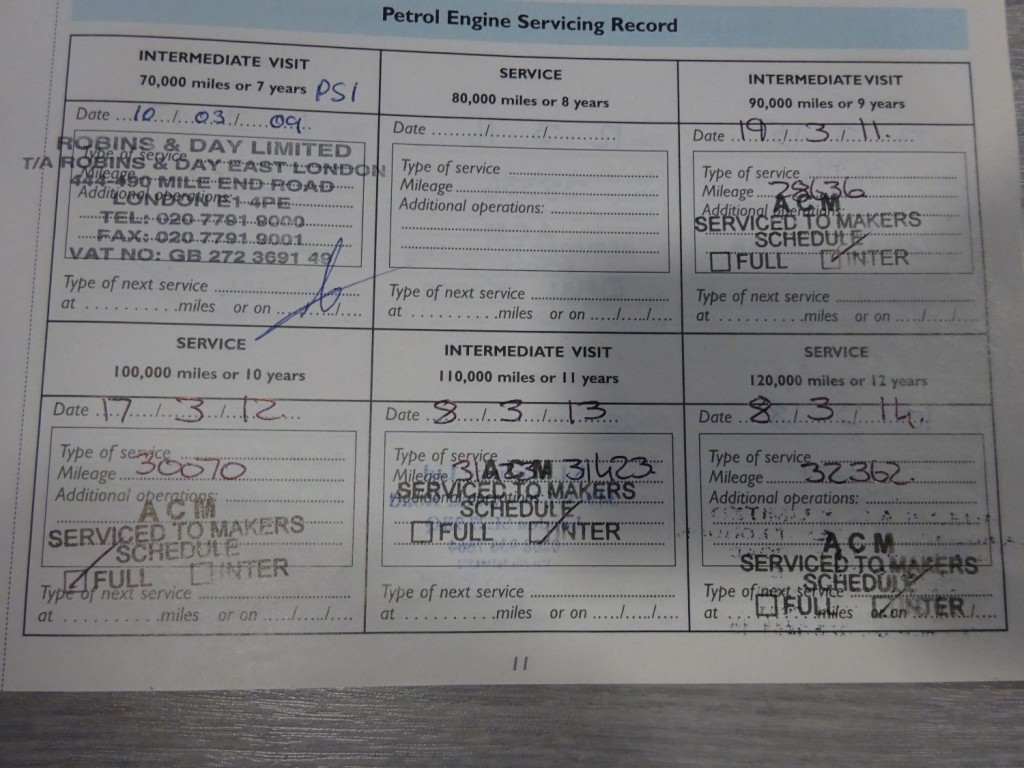 Petrol Engine Servicing Record
INTERMEDIATE VISIT
70,000 miles or 7 years PSI
Date 10/03/09
ROBINS & DAY LIMITED
Type of service
T/A ROBINS & DAY EAST LONDON
Mileage
444-490 MILE END ROAD
Additional operations:
LONDON E1 4PE
TEL: 020 7791 9000
FAX: 020 7791 9001
VAT NO: GB 272 3691 49
Type of next service
at .......... miles or on ...../...../....
SERVICE
80,000 miles or 8 years
Date ........../........../..........
Type of service
Mileage
Additional operations:
Type of next service
at .......... miles or on ...../...../....
INTERMEDIATE VISIT
90,000 miles or 9 years
Date 19/3/11.
Type of service
Mileage 28636
Additional operations:
ACM
SERVICED TO MAKERS
SCHEDULE
FULL INTER
Type of next service
at .......... miles or on ...../...../....
SERVICE
100,000 miles or 10 years
Date 17/3/12
Type of service
Mileage 30070
Additional operations:
ACM
SERVICED TO MAKERS
SCHEDULE
FULL INTER
Type of next service
at .......... miles or on ...../...../....
INTERMEDIATE VISIT
110,000 miles or 11 years
Date 8/3/13
Type of service
Mileage 31423
ACM
SERVICED TO MAKERS
Additional operations:
SCHEDULE
FULL INTER
Type of next service
at .......... miles or on ...../...../....
SERVICE
120,000 miles or 12 years
Date 8/3/14.
Type of service
Mileage 32362.
Additional operations:
ACM
SERVICED TO MAKERS
SCHEDULE
Type of next service
FULL INTER
at .......... miles or on ...../...../....
11